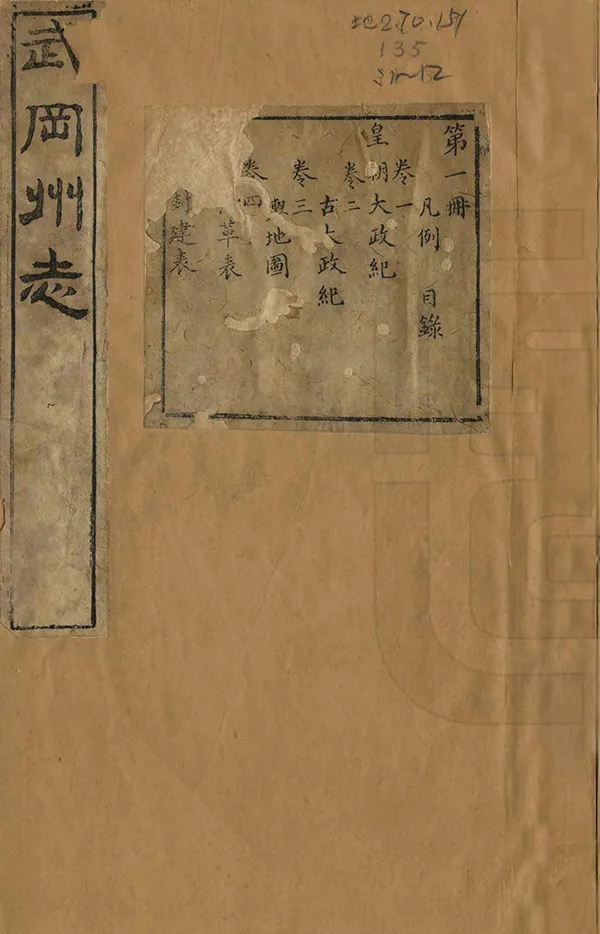 武岡州志
地2.70.151
135
第一冊
凡例 目錄
卷一
皇朝大政紀
卷二
古大政紀
卷三
輿地圖
卷四
革表
封建表